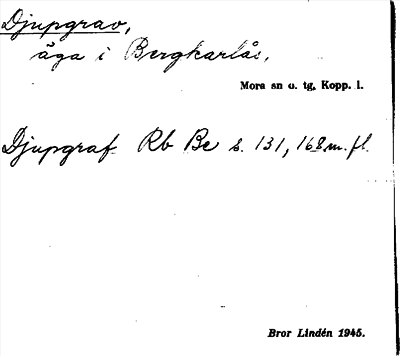 Djupgrav,
äga i Bergkarlås,
Mora sn o. tg, Kopp. l.
Djupgraf Rb Be s. 131, 168 m. fl.
Bror Lindén 1945.